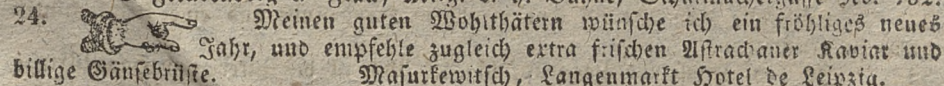 24. Meinen guten Wohlthätern wünsche ich ein fröhliges neues
Jahr, und empfehle zugleich extra frischen Astrachaner Kaviar und
billige Gänsebrüste. Masurkewitsch, Langenmarkt Hotel de Leipzig.